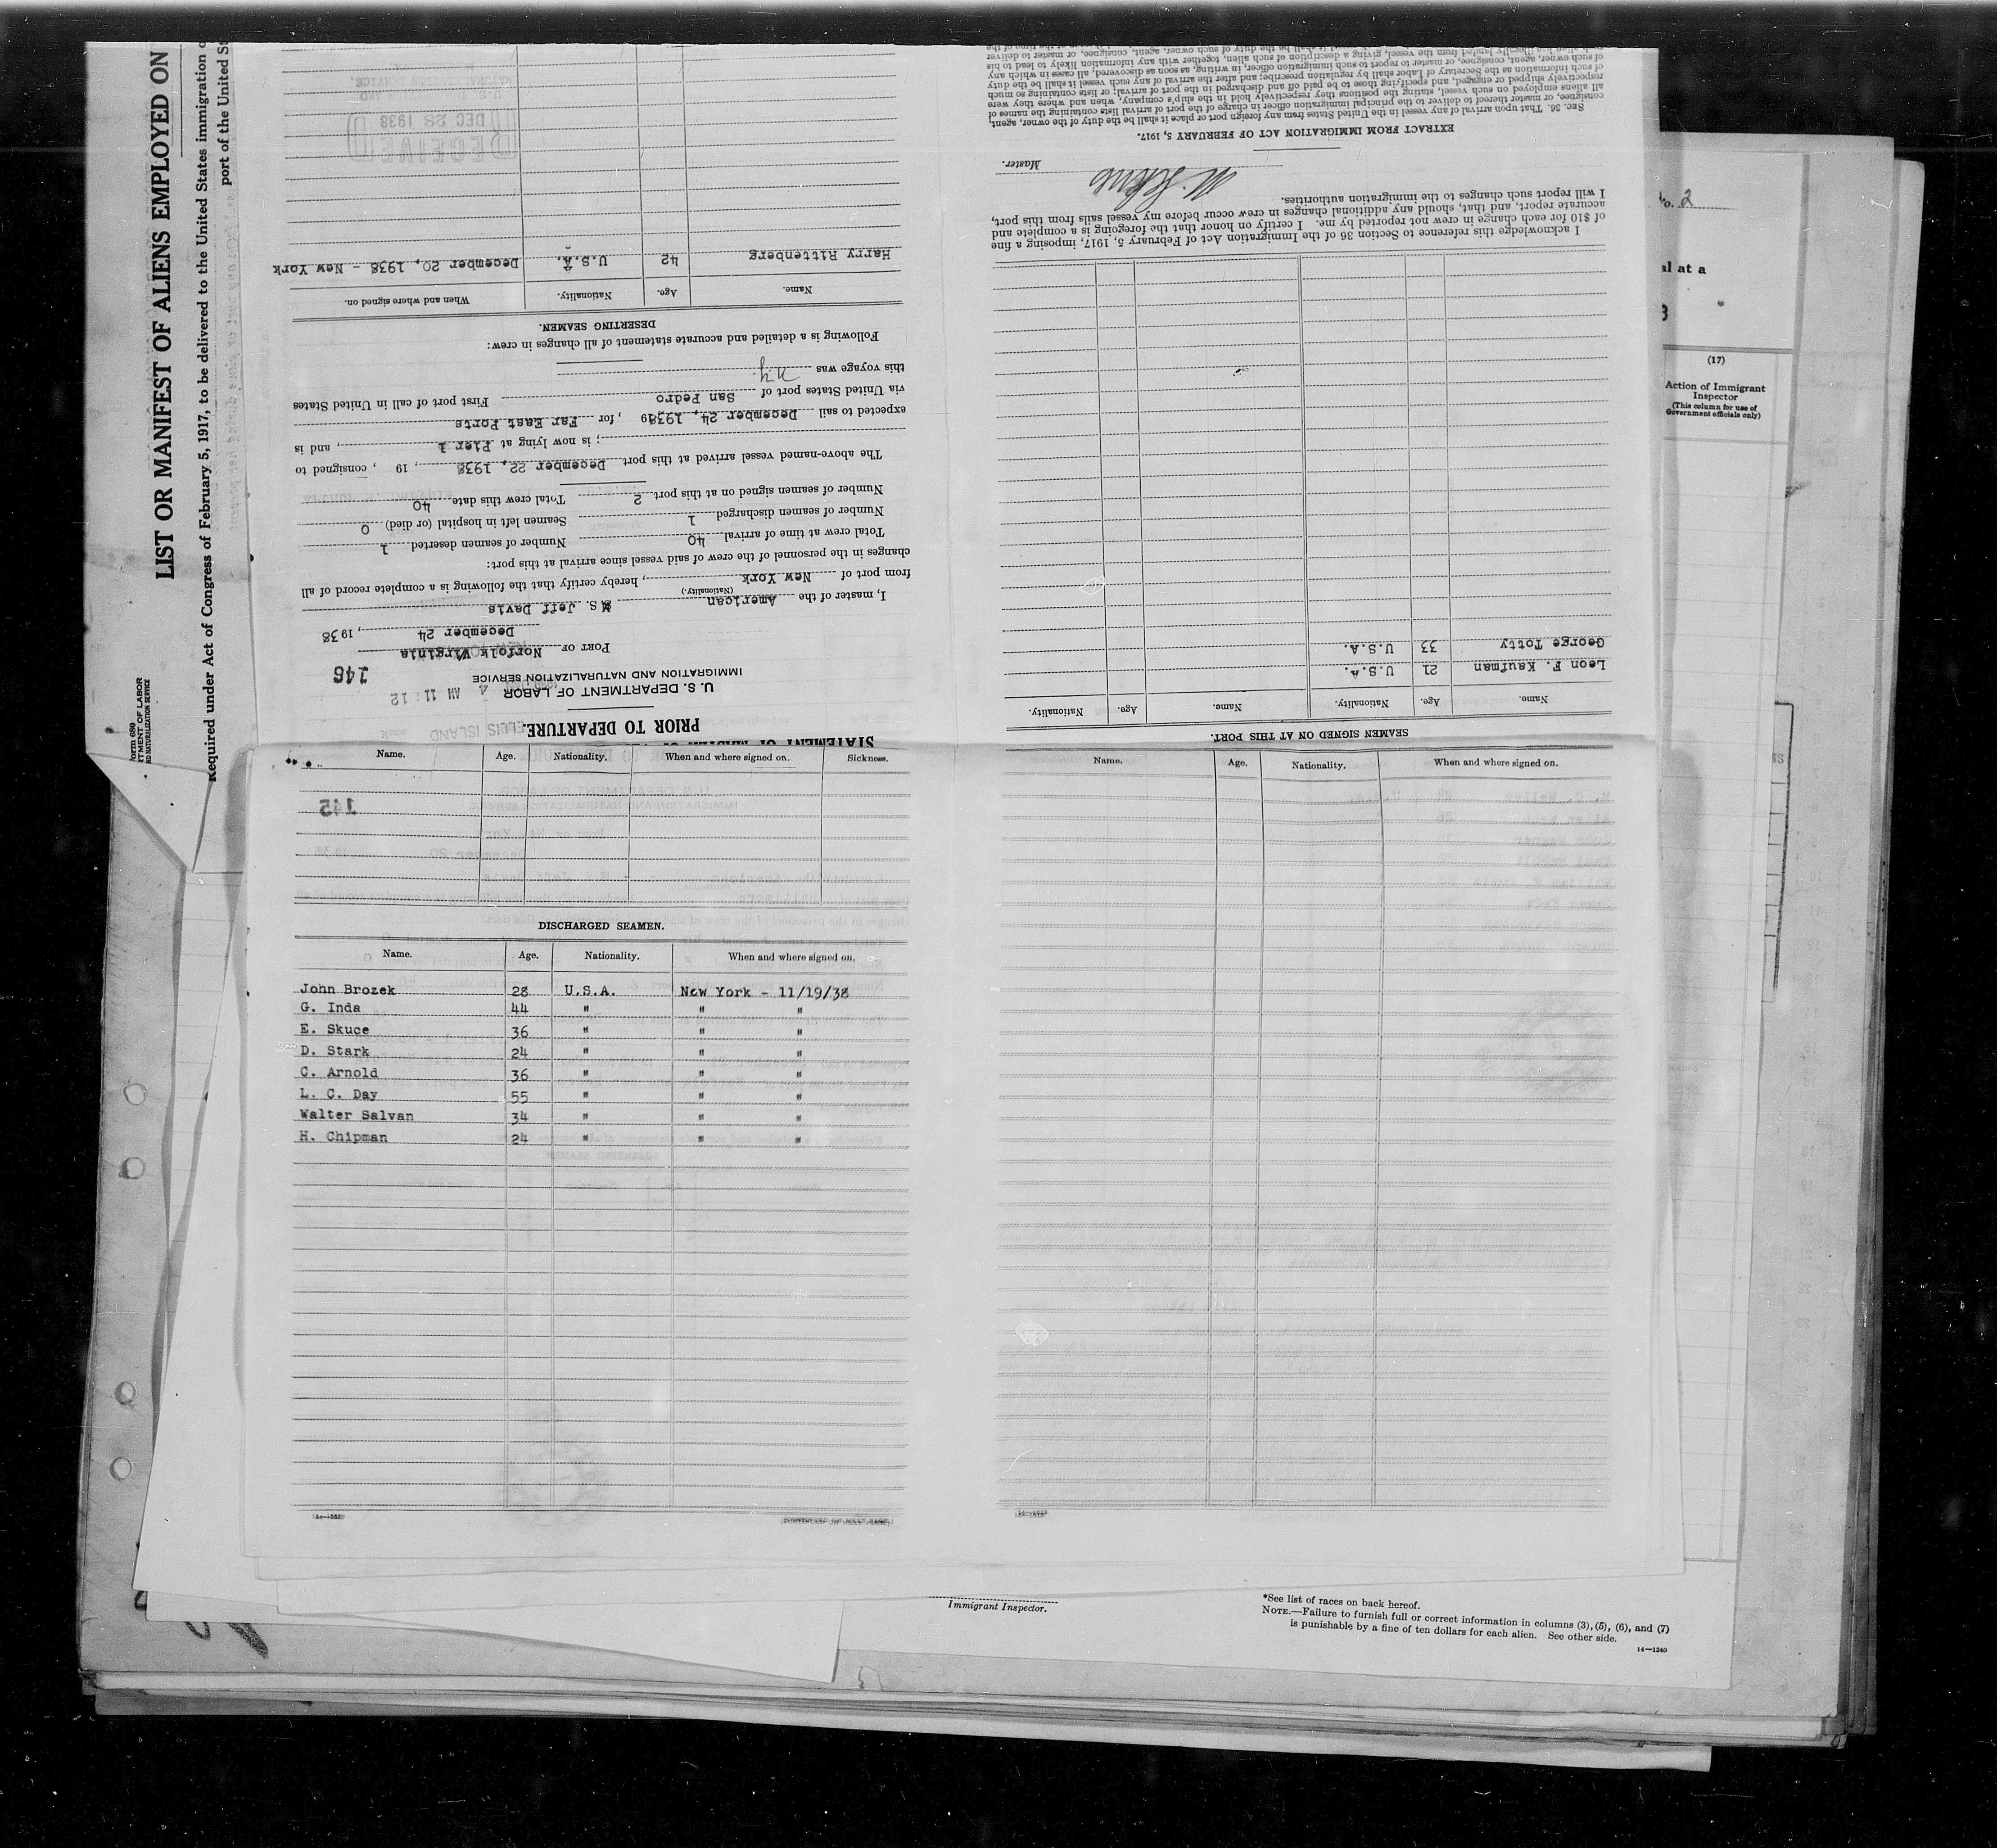 LIST OR MANIFEST OF ALIENS EMPLOYED ON
Required under Act of Congress of February 5, 1917, to be delivered to the United States immigration
port of the United St
Form 680
TMENT OF LABOR
ND NATURALIZATION SERVICE
PRIOR TO DEPARTURE.
U. S. DEPARTMENT OF LABOR
IMMIGRATION AND NATURALIZATION SERVICE
146
4 AM 11 : 12
ELLIS ISLAND
PORT OF Norfolk Virginia
December 24, 1938
I, master of the American M.S. Jeff Davis
(Nationality.)
from port of New York, hereby certify that the following is a complete record of all
changes in the personnel of the crew of said vessel since arrival at this port:
Total crew at time of arrival 40 Number of seamen deserted 1
Number of seamen discharged 1 Seamen left in hospital (or died) 0
Number of seamen signed on at this port 2 Total crew this date 40
The above-named vessel arrived at this port December 22, 1938, 19 , consigned to
; is now lying at Pier 1, and is
expected to sail December 24, 1938, 19 , for Far East Ports
via United States port of San Pedro First port of call in United States
this voyage was N.Y.
Following is a detailed and accurate statement of all changes in crew:
DESERTING SEAMEN.
Name. Age. Nationality. When and where signed on.
Harry Rittenberg 42 U.S.A. December 20, 1938 - New York
RECEIVED
DEC 28 1938
SEAMEN SIGNED ON AT THIS PORT.
Name. Age. Nationality. Name. Age. Nationality.
Leon F. Kaufman 21 U.S.A.
George Totty 33 U.S.A.
I acknowledge this reference to Section 36 of the Immigration Act of February 5, 1917, imposing a fine
of $10 for each change in crew not reported by me. I certify on honor that the foregoing is a complete and
accurate report, and that, should any additional changes in crew occur before my vessel sails from this port,
I will report such changes to the immigration authorities.
Master.
EXTRACT FROM IMMIGRATION ACT OF FEBRUARY 5, 1917.
SEC. 36. That upon arrival of any vessel in the United States from any foreign port or place it shall be the duty of the owner, agent,
consignee, or master thereof to deliver to the principal immigration officer in charge of the port of arrival lists containing the names of
all aliens employed on such vessel, stating the positions they respectively hold in the ship's company, when and where they were
respectively shipped or engaged, and specifying those to be paid off and discharged in the port of arrival; or lists containing so much
of such information as the Secretary of Labor shall by regulation prescribe; and after the arrival of any such vessel it shall be the duty
of such owner, agent, consignee, or master to report to such immigration officer, in writing, as soon as discovered, all cases in which any
such alien has illegally landed from the vessel, giving a description of such alien, together with any information likely to lead to his
Name. Age. Nationality. When and where signed on. Sickness.
142
DISCHARGED SEAMEN.
Name. Age. Nationality. When and where signed on.
John Brozek 28 U.S.A. New York - 11/19/38
G. Inda 44 " " "
E. Skuce 36 " " "
D. Stark 24 " " "
C. Arnold 36 " " "
L. C. Day 55 " " "
Walter Salvan 34 " " "
H. Chipman 24 " " "
Name. Age. Nationality. When and where signed on.
No. 2
al at a
(17)
Action of Immigrant
Inspector
(This column for use of
Government officials only)
Immigrant Inspector.
*See list of races on back hereof.
NOTE.—Failure to furnish full or correct information in columns (3), (5), (6), and (7)
is punishable by a fine of ten dollars for each alien. See other side.
14—1240